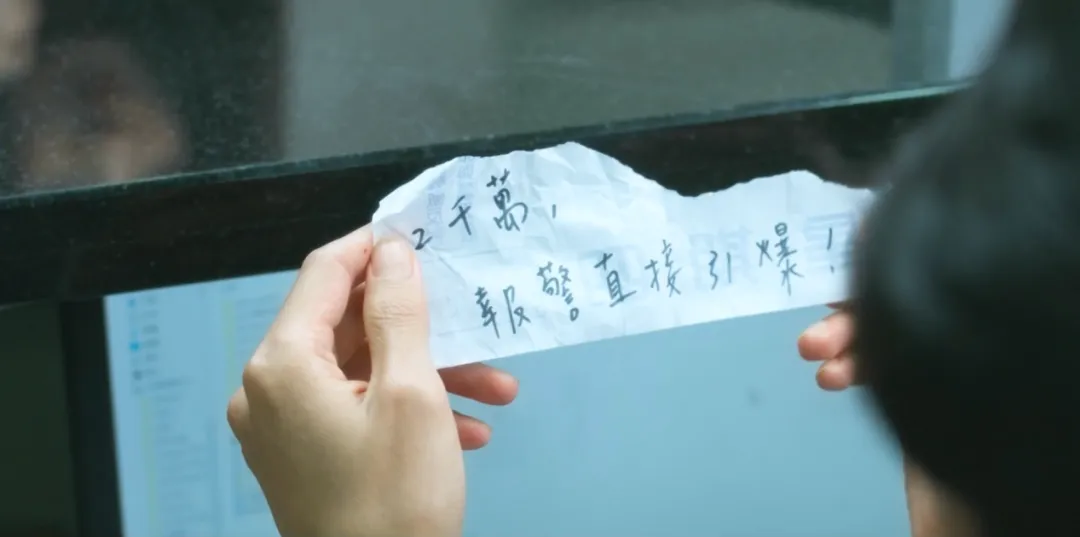 2千萬,
報警直接引爆!